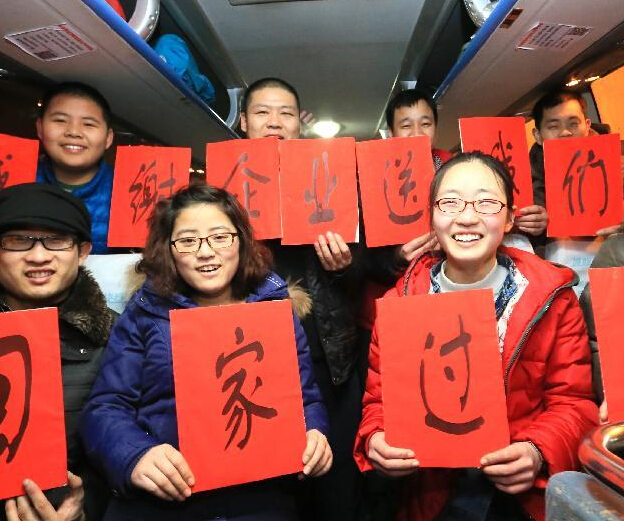 谢企业送我们
回家过